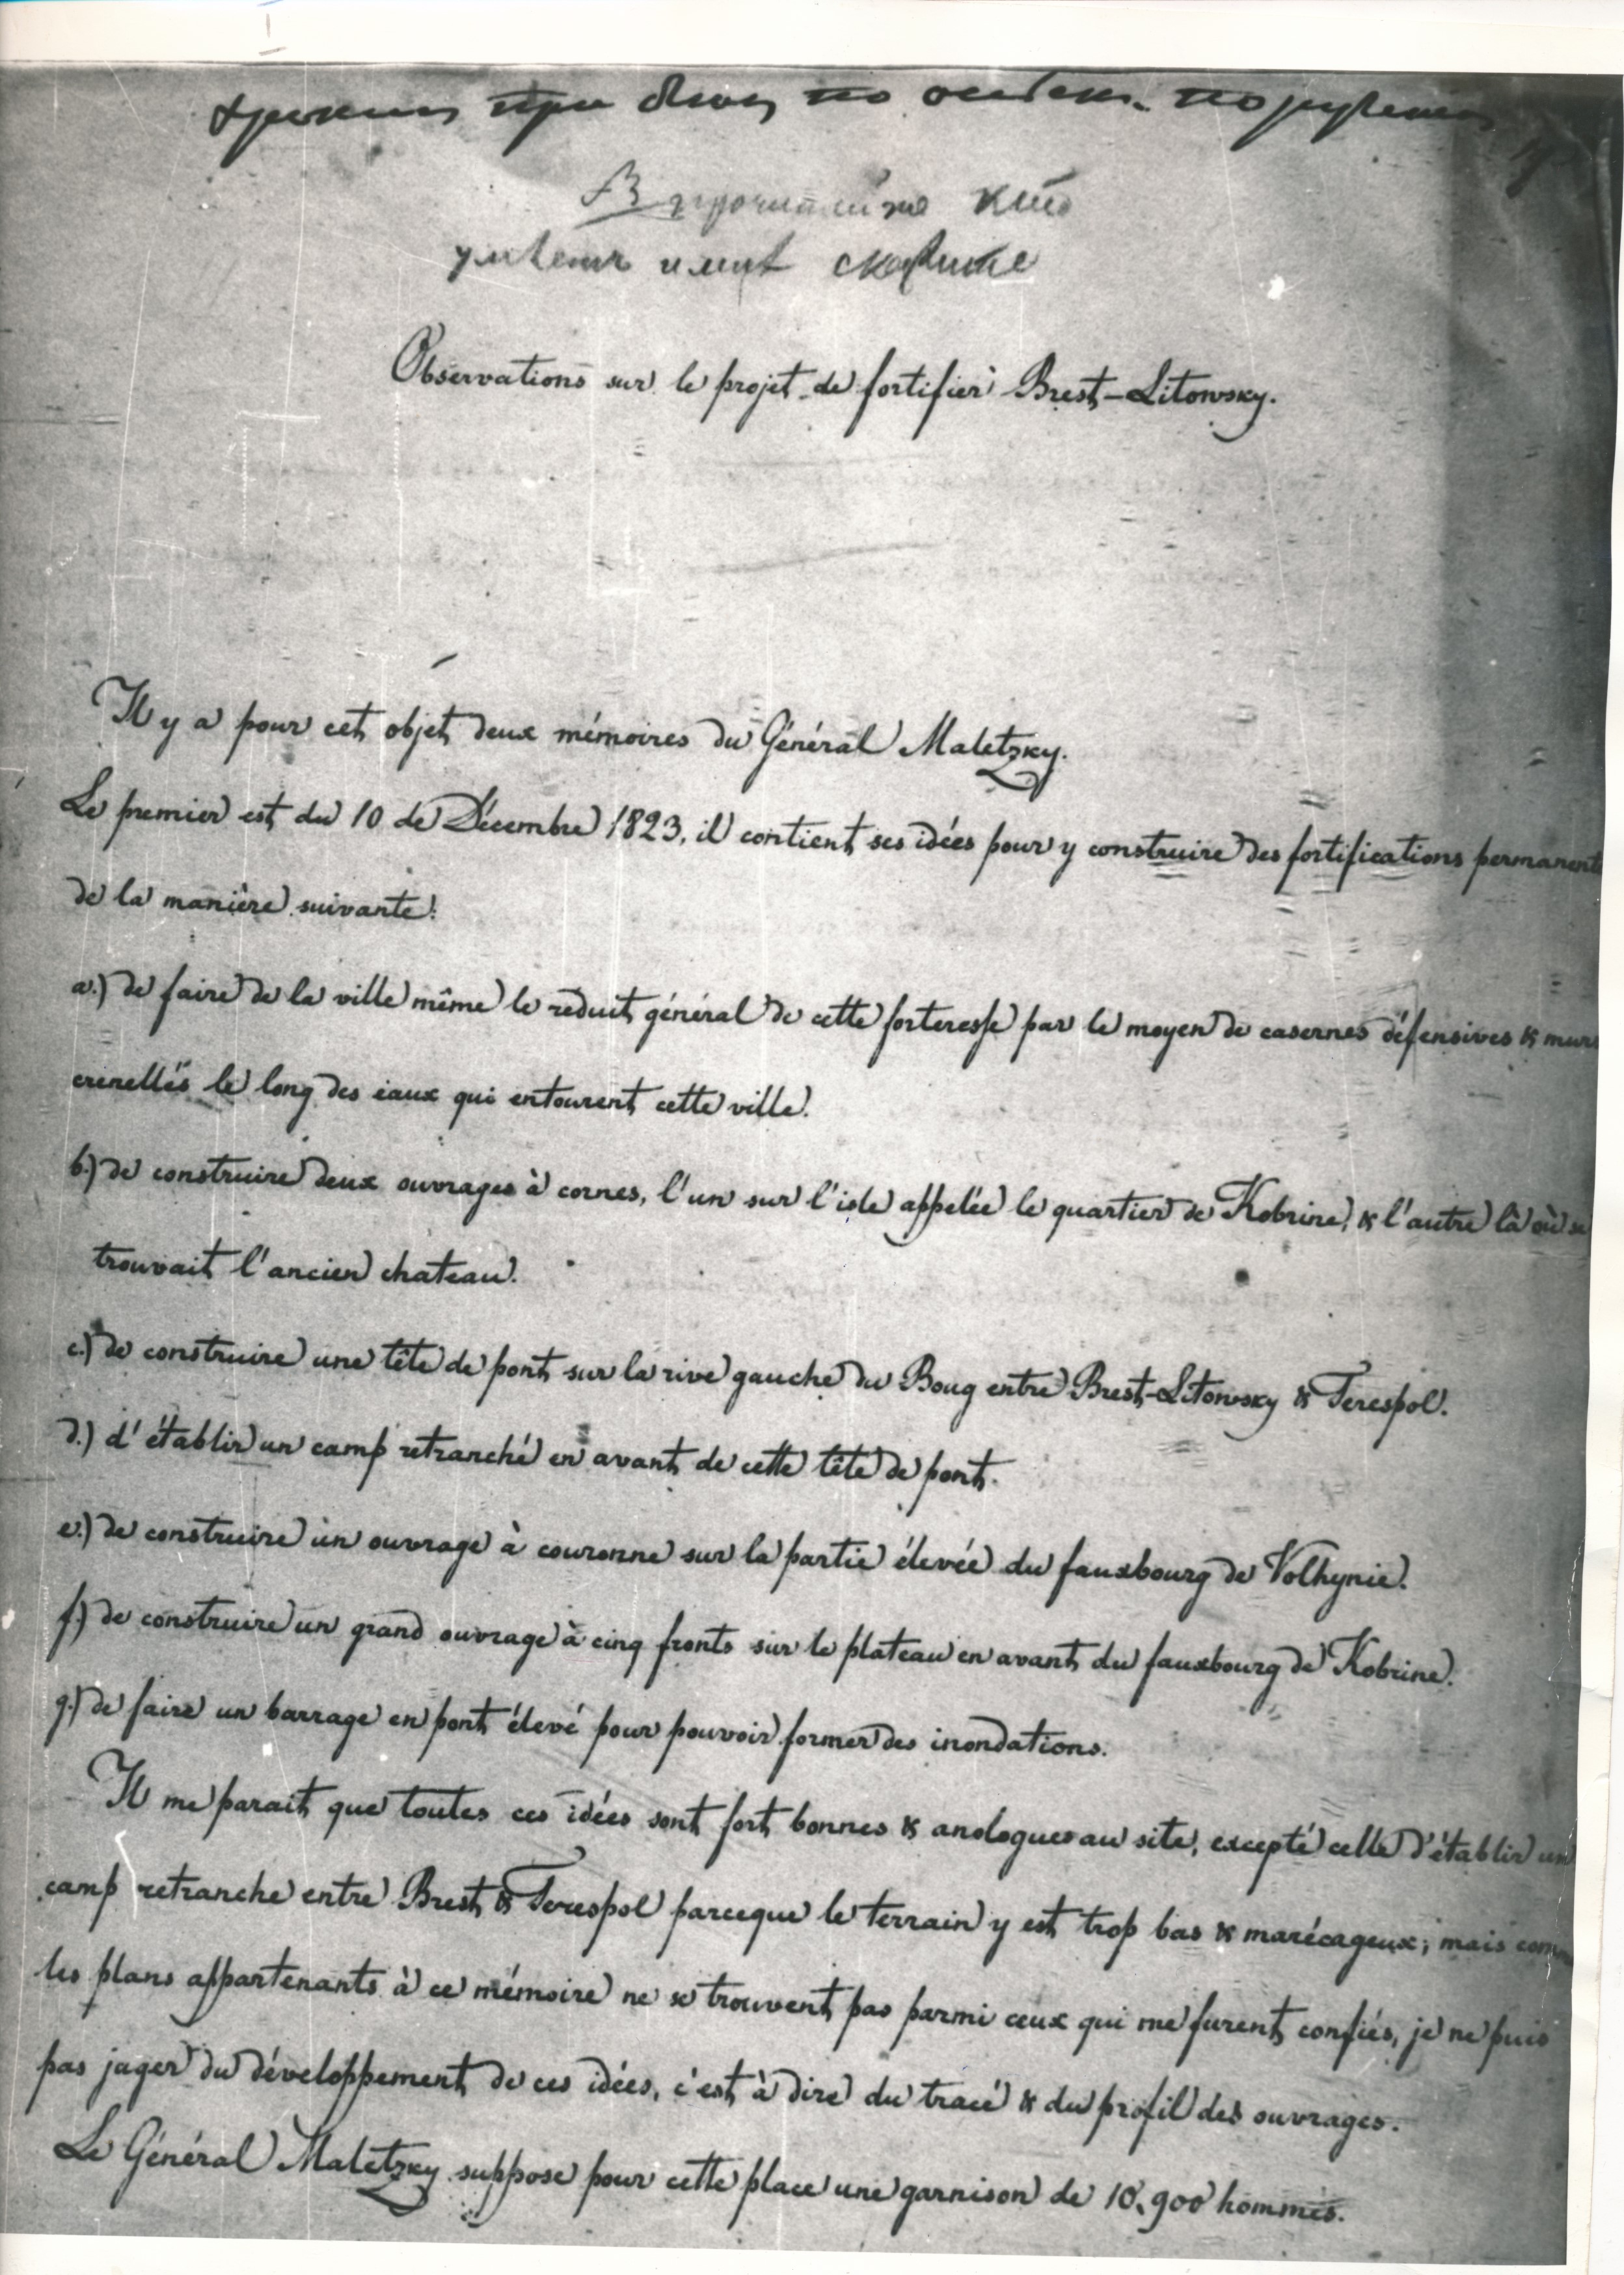 при по
Observations sur le projet de fortifier Brest-Litowsky.
Il y a pour cet objet deux mémoires du Général Maletzky.
Le premier est du 10 de Décembre 1823, il contient ses idées pour y construire des fortifications permanent
de la manière suivante:
a.) de faire de la ville même le reduit général de cette forteresse par le moyen de casernes défensives & murs
crenellés le long des eaux qui entourent cette ville.
b.) de construire deux ouvrages à cornes, l'un sur l'isle appelée le quartier de Kobrine, & l'autre là où se
trouvait l'ancien chateau.
c.) de construire une tête de pont sur la rive gauche du Boug entre Brest-Litowsky & Terespol.
d.) d'établir un camp retranché en avant de cette tête de pont.
e.) de construire un ouvrage à couronne sur la partie élevée du fauxbourg de Volhynie.
f.) de construire un grand ouvrage à cinq fronts sur le plateau en avant du fauxbourg de Kobrine.
g.) de faire un barrage en pont élevé pour pouvoir former des inondations.
Il me parait que toutes ces idées sont fort bonnes & analogues au site, excepté celle d'établir un
camp retranche entre Brest & Terespol parceque le terrain y est trop bas & marécageux; mais com
les plans appartenants à ce mémoire ne se trouvent pas parmi ceux qui me furent confiés, je ne puis
pas juger du développement de ces idées, c'est à dire du tracé & du profil des ouvrages.
Le Général Maletzky suppose pour cette place une garnison de 10,900 hommes.